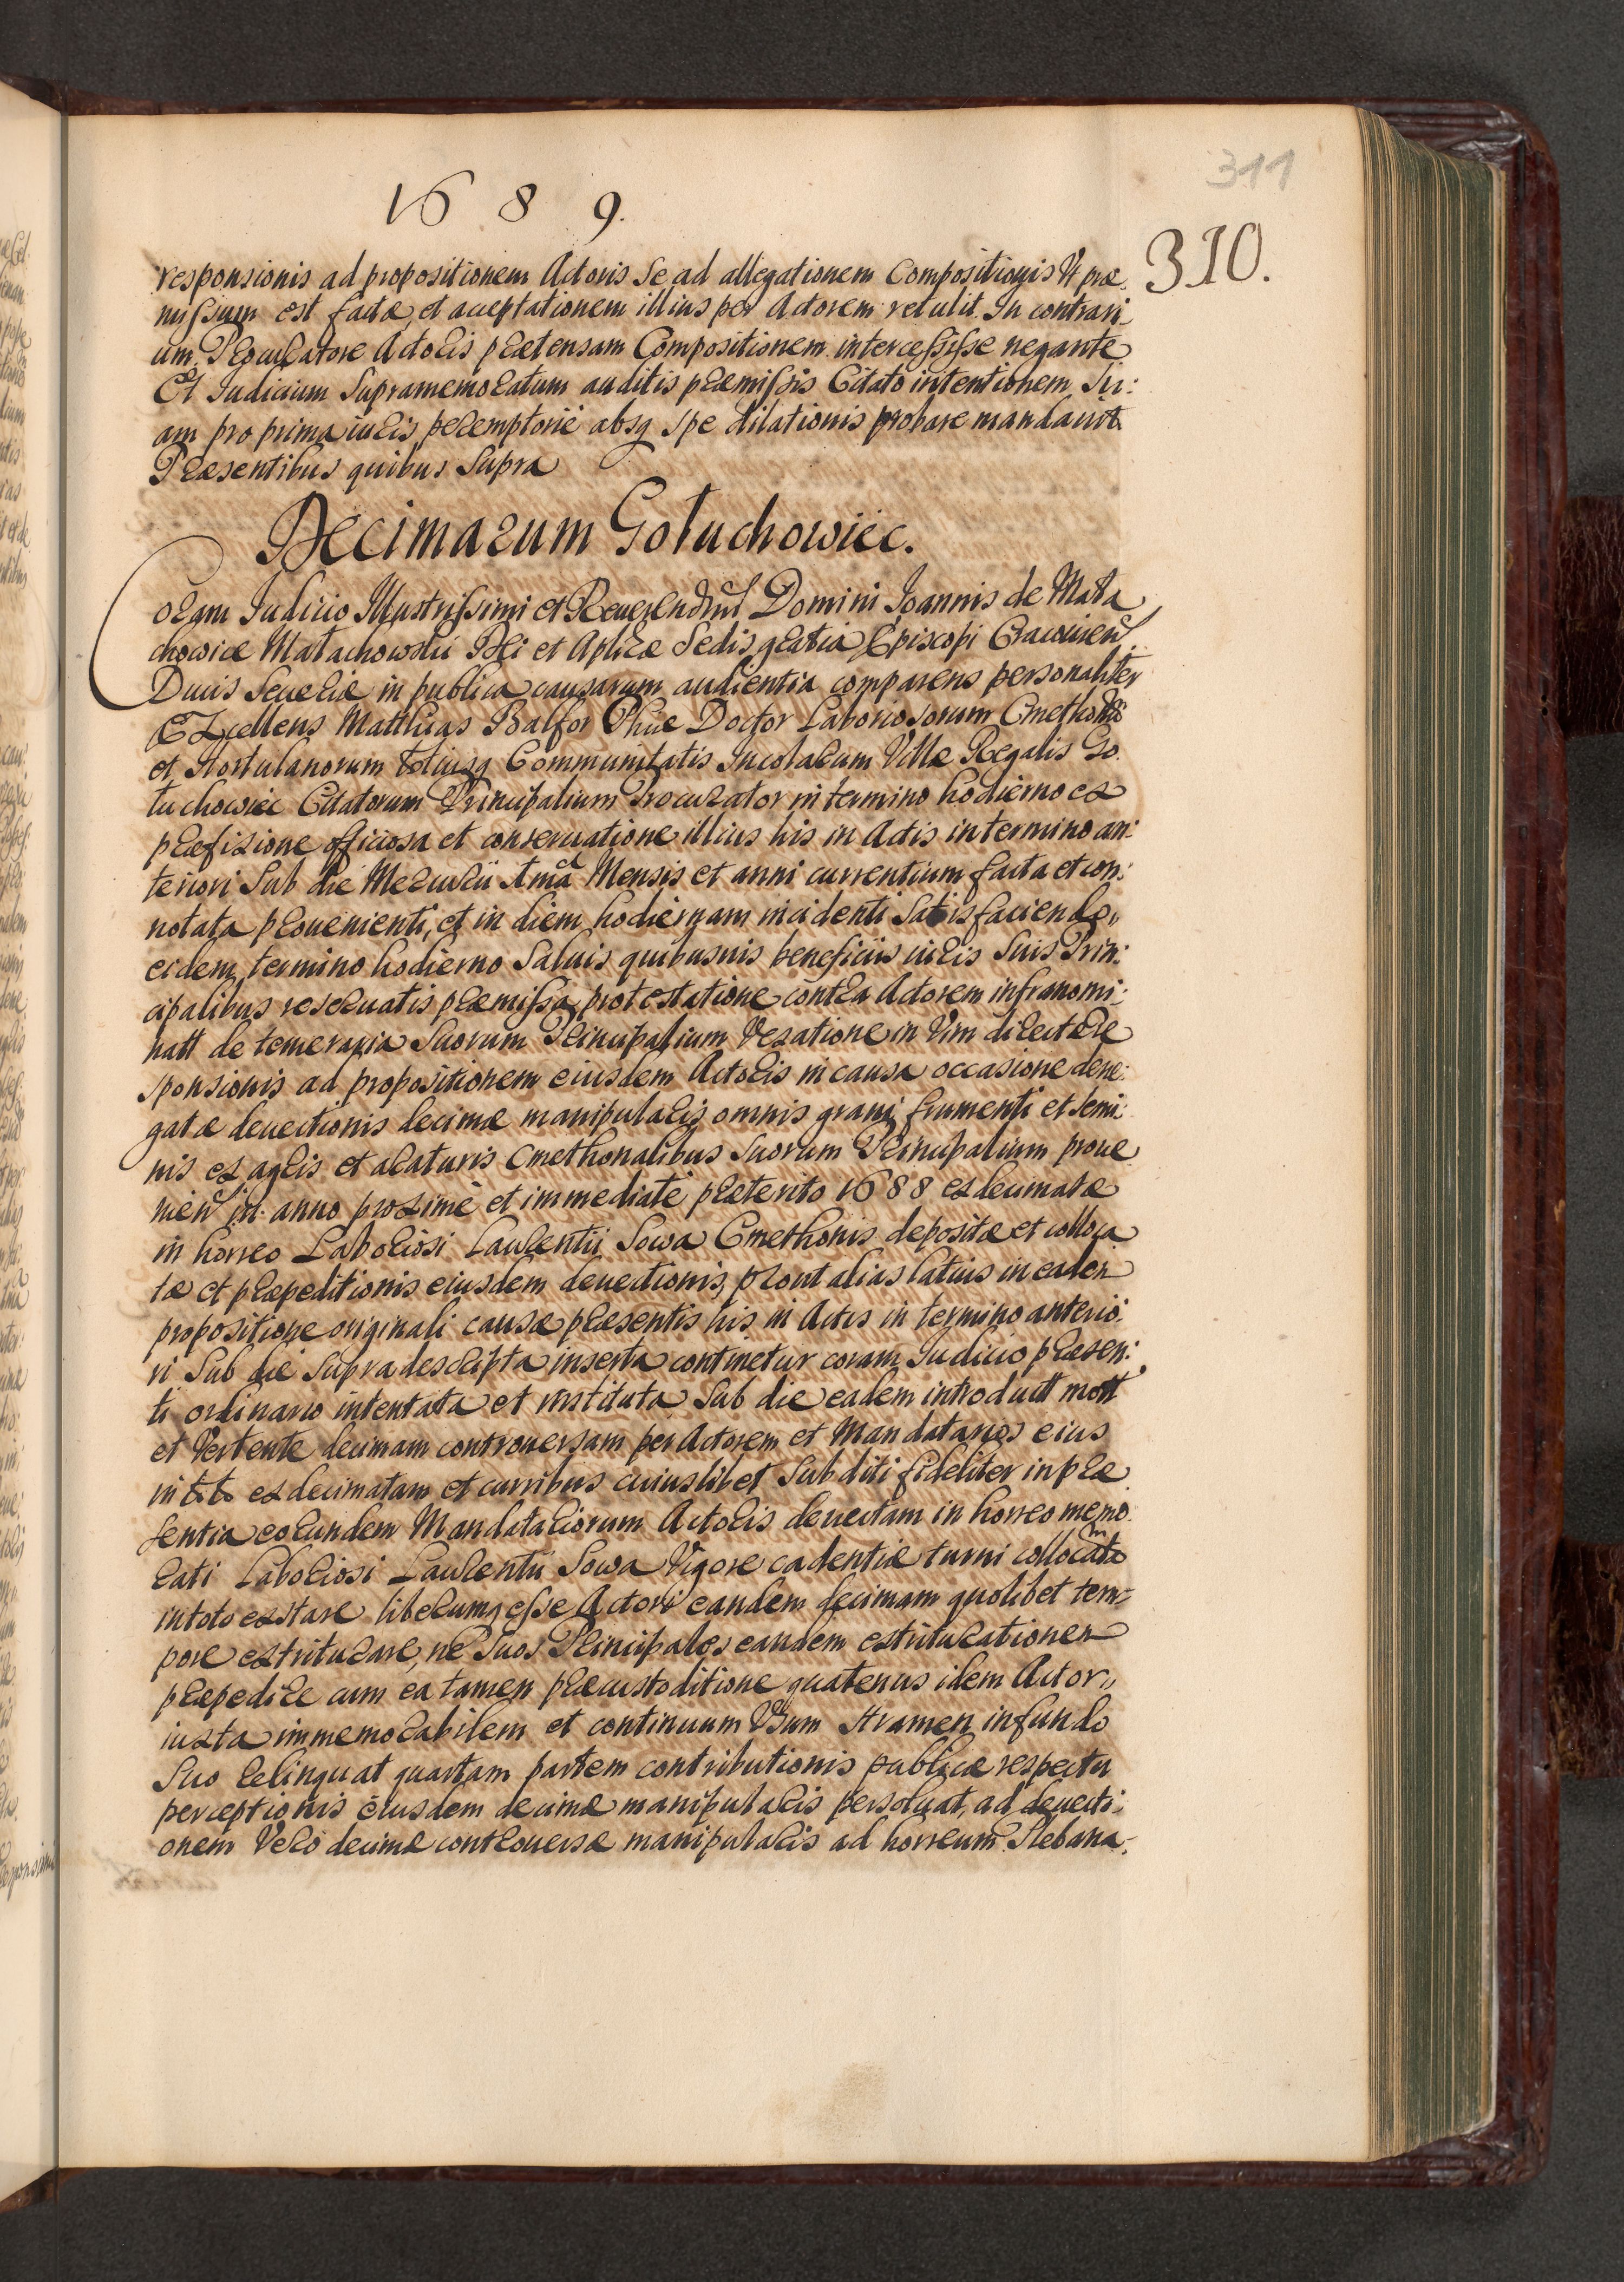 311
1689.
310.
responsionis ad propositionem Actoris se ad allegationem Compositionis Vt præ-
missum est factæ, et acceptationem illius per Actorem retulit. In contrari-
um Procuratore Actoris prætensam Compositionem intercessisse negante
Et Iudicium Supramemoratum auditis præmissis Citato intentionem Su:
am pro prima iuris peremptorie absq spe dilationis probare mandauit
Præsentibus quibus Supra
Decimarum Gołuchowiec.
Coram Iudicio Illustrissimi et Reuerendissimi Domini Joannis de Mała
chowice Małachowski Dei et Aplicæ Sedis gratia Episcopi Cracouien
Ducis Seueriæ in publica causarum audientia comparens personaliter
Excellens Matthias Balfor Phiæ Doctor Laboriosorum Cmethonū
et Hortulanorum totiusq Communitatis Incolarum Villæ Regalis Go-
łuchowiec Citatorum Principalium Procurator in termino hodierno ex
præfixione officiosa et conseruatione illius his in Actis in termino an:
teriori Sub die Mercurii Mensis et anni currentium facta et con:
notata prouenienti, et in diem hodiernam incidenti Satisfaciendo,,
eidem termino hodierno Saluis quibusuis beneficiis iuris Suis Prin:
cipalibus reseruatis præmissa protestatione contra Actorem infranomi:
natt de temeraria Suorum Principalium Vexatione in Vim directæ Re
sponsionis ad propositionem eiusdem Actoris in causa occasione dene:
gatæ deuectionis decimæ manipularis omnis grani frumenti et Semi:
nis ex agris et araturis Cmethonalibus Suorum Principalium proue
nien in anno proxime et immediate præterito 1688 exdecimatæ
in horreo Laboriosi Laurentii Sowa Cmethonis depositæ et colloca
tæ et præpeditionis eiusdem deuectionis, prout alias latius in eadem
propositione originali causæ præsentis his in Actis in termino anterio:
ri Sub die Supradescripta inserta continetur coram Iudicio præsen:
ti ordinario intentata et instituta Sub die eadem introductt mott
et Vertente decimam controuersam per Actorem et Mandatarios eius
in exdecimatam et curribus cuiuslibet Subditi fideliter in præ
sentia eorundem Mandatariorum Actoris deuectam in horreo memo
rati Laboriosi Laurentii Sowa Vigore cadentiæ turni collocatam
in toto exstare liberumq esse Actori eandem decimam quolibet tem-
pore extriturare, ne Suos Principales eandem extriturationem
præpedire cum ea tamen præcustoditione quatenus idem Actor,,
iuxta immemorabilem et continuum Vsum stramen in fundo
Suo relinquat quartam partem contributionis publicæ respectu
perceptionis eiusdem decimæ manipularis persoluat, ad deuecti:
onem Vero decimæ controuersæ manipularis ad horreum Plebana-